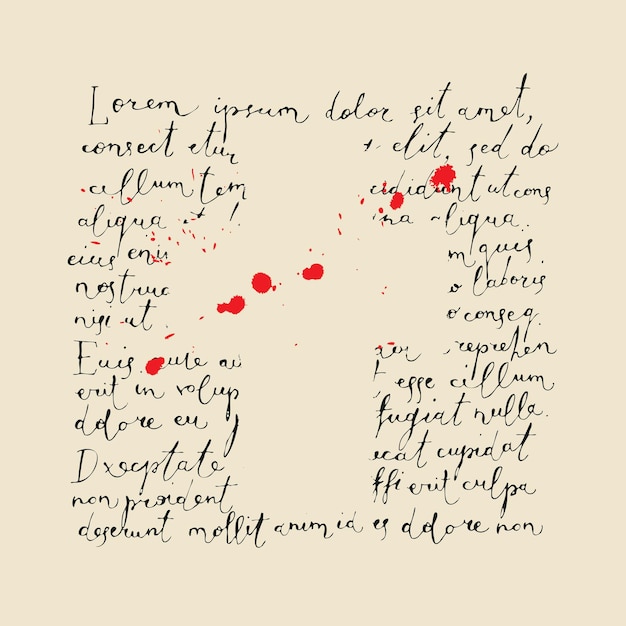 Lorem ipsum dolor sit amet,
consect etur elit, sed do
cillum tem cididunt ut cons
aliqua na aliqua.
eius eni m quis
nostrud o laboris
nisi ut o conseq.
Euis aute au reprehen
erit in volup t esse cillum
dolore eu fugiat nulla.
Dxecptate ecat cupidat
non proident ffi erit culpa
deserunt mollit anim id es dolore non